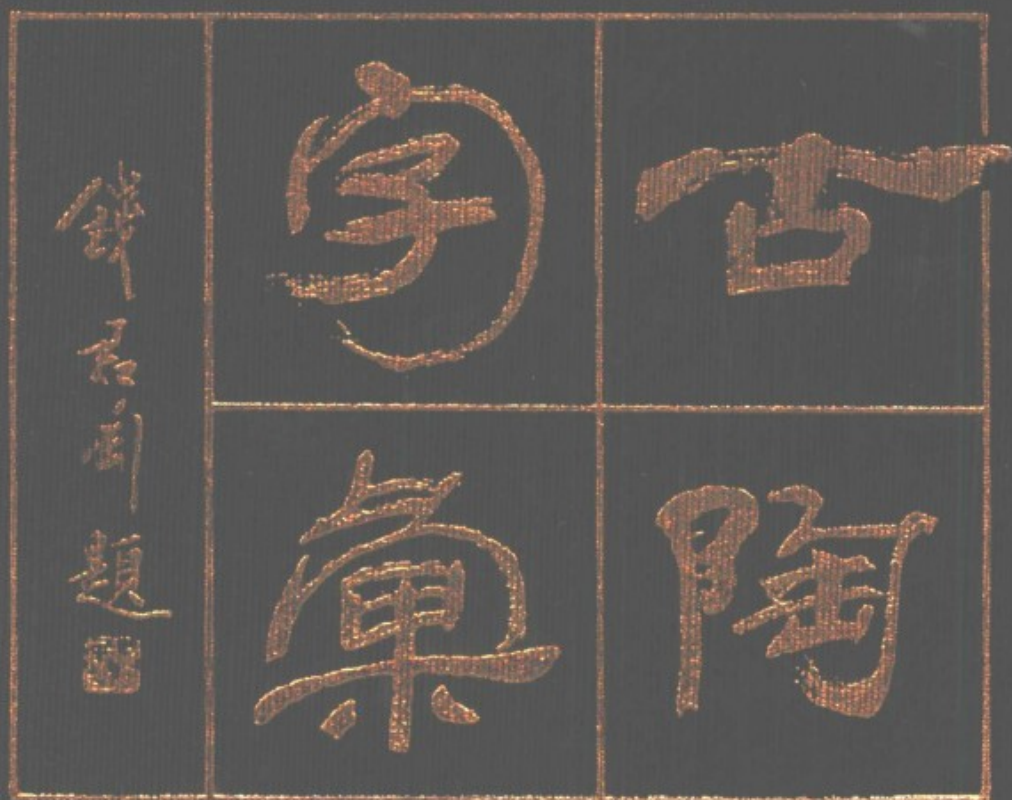 古陶
字彙
錢君匋題